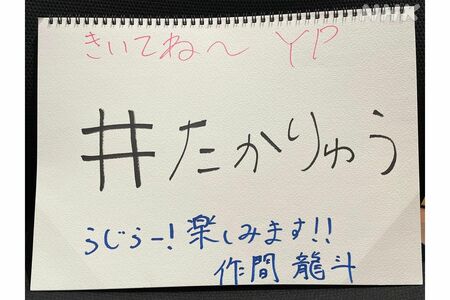 NHK
きいてね〜 YP
#たかりゅう
うじうー!楽しみます!!
作間 龍斗